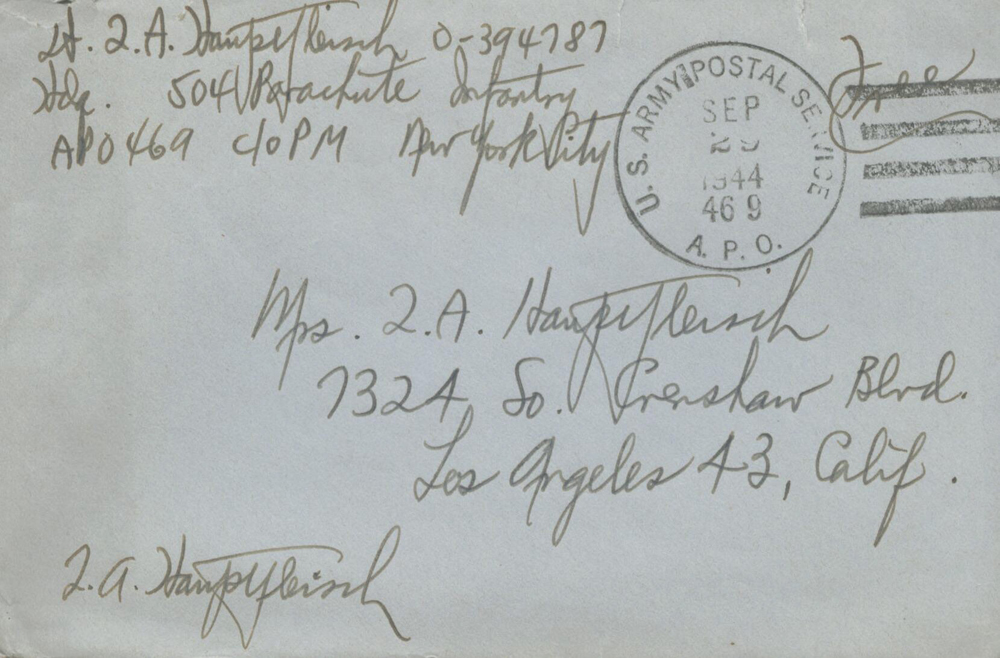 Lt. L.A. Hauptfleisch O-394787
Hdq. 504 Parachute Infantry
APO 469 c/o PM New York City
Free
U.S. ARMY POSTAL SERVICE
SEP
1944
469
A. P. O.
Mrs. L.A. Hauptfleisch
7324 So. Crenshaw Blvd.
Los Angeles 43, Calif.
L.A. Hauptfleisch